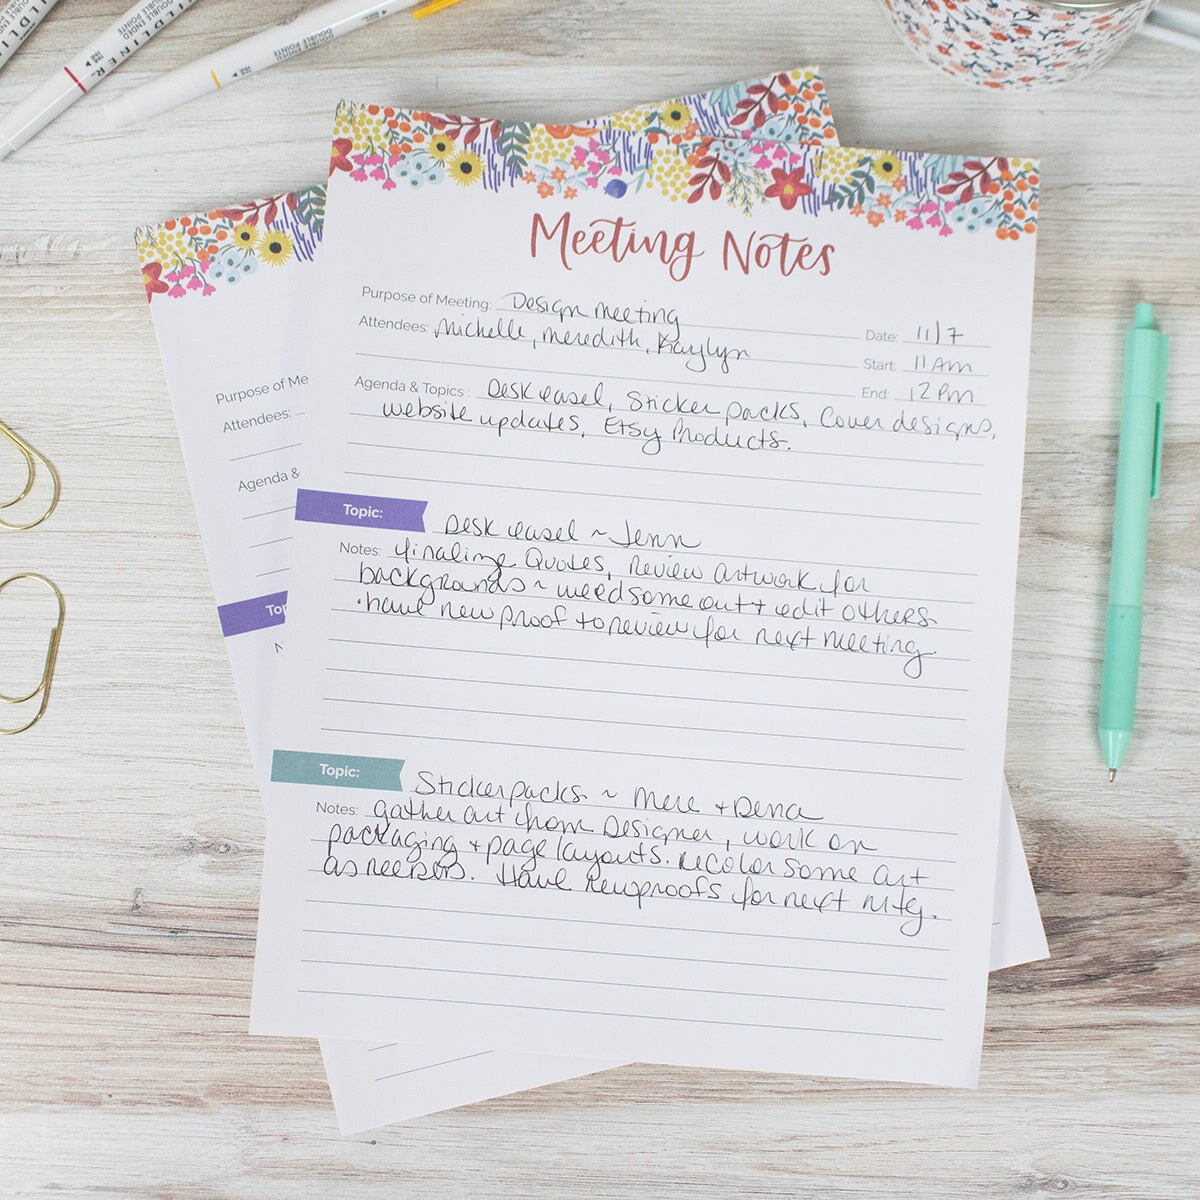 WILDLINER
DOUBLE ENDED
POINTE
DOUBLE ENDED
DOUBLE POINTE
Meeting Notes
Purpose of Meeting: Design meeting
Date: 11/7
Attendees: Michelle, Meredith, Kaylyn
Start: 11 Am
End: 12 Pm
Agenda & Topics: Desk easel, Sticker packs, Cover designs,
website updates, Etsy Products.
Topic: Desk easel ~ Jenn
Notes: finalize Quotes, review artwork for
backgrounds ~ weed some out + edit others.
• have new proof to review for next meeting.
Topic: Sticker packs ~ Mere + Dena
Notes: gather art from Designer, work on
packaging + page layouts. recolor some art
as needed. Have new proofs for next mtg.
Purpose of Me
Attendees:
Agenda &
Top
N